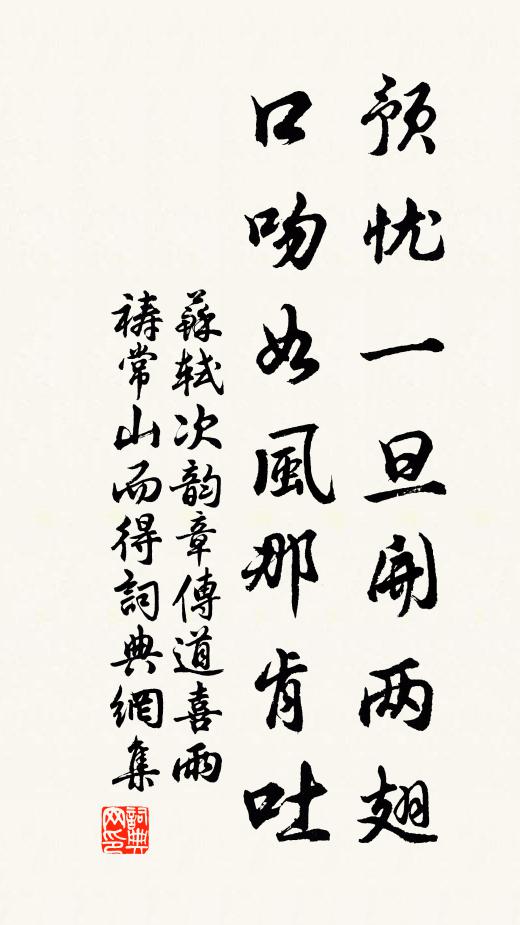 预忧一旦開两翅
口吻如風那肯吐
蘇軾次韵章傳道喜雨
禱常山而得詞典網集
詞典网印